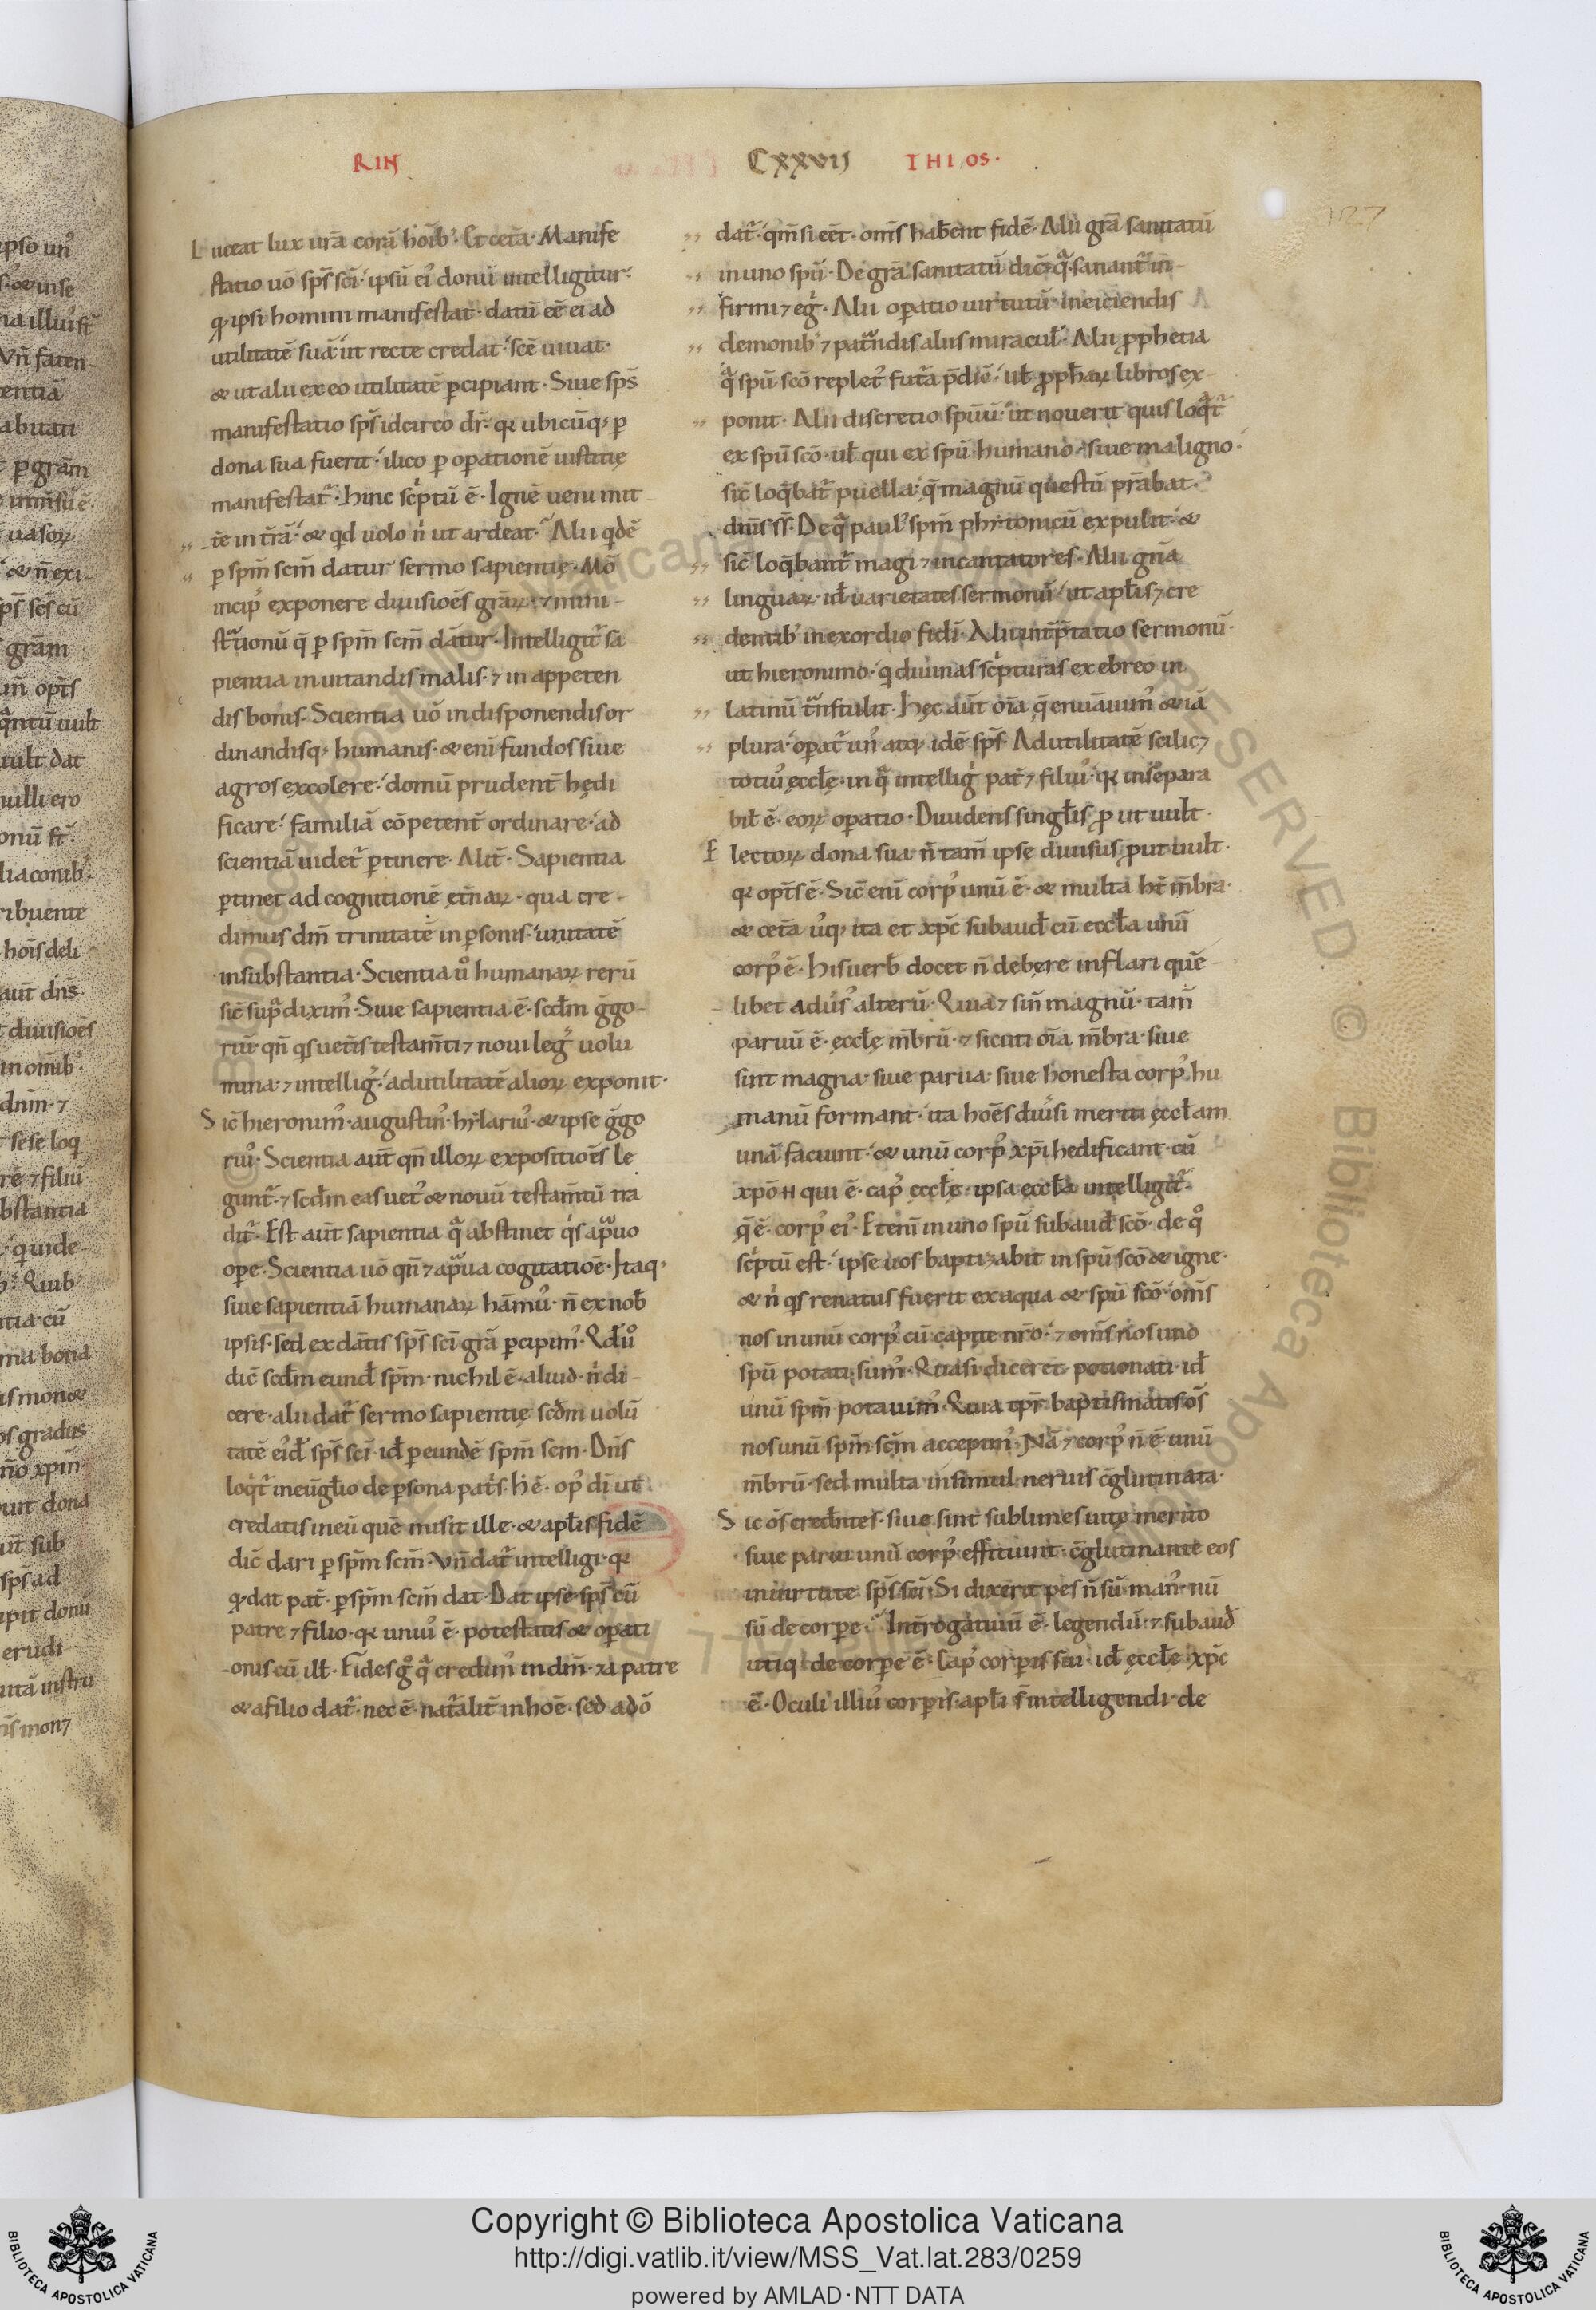 RIN
CXXVII THIOS.
127
Luceat lux ur̄a corā hoīb; Et cet̄a. Manife
statio uō sp̄s sc̄i ipsū ei' donū intelligitur.
q; ipsi homini manifestat. datū eē ei ad
utilitatē suā ut recte credat. sc̄e uiuat.
& ut alii ex eo utilitatē p̄cipiant. Siue sp̄s
manifestatio sp̄s idcirco dr̄. q; ubicūq; p̄
dona sua fuerit. ilico p̄ op̄ationē iustitię
manifestat̄. hinc sc̄ptū ē. Ignē ueni mit
t̄e in t̄rā. & qd uolo n̄ ut ardeat. Alii qdē
p̄ spm̄ scm̄ datur sermo sapientię. Mō
incip' exponere diuisioēs grāꝝ. ⁊ mini-
st̄tionū q̄ p̄ spm̄ scm̄ dātur. Intelligit̄ sa
pientia in uitandis malis. ⁊ in appeten
dis bonis. Scientia uō in disponendis or
dinandisq; humanis. & eni fundos siue
agros excolere. domū prudent̄ hędi
ficare. familiā cōpetent̄ ordinare. ad
scientiā uidet̄ p̄tinere. Alit̄. Sapientia
p̄tinet ad cognitionē et̄naꝝ. qua cre-
dimus dm̄ trinitatē in p̄sonis. unitatē
in substantia. Scientia ů humanaꝝ rerū
sic̄ sup̄ dixim'. Siue sapientia ē. scd̄m ḡgo-
riū. qn̄ qs uet̄is testam̄ti ⁊ noui leḡ uolu
mina. ⁊ intelliḡ. ad utilitatē alioꝝ exponit.
Sic̄ hieronim'. augustin'. hylariu'. & ipse ḡgo
riu'. Scientia aut̄ qn̄ illoꝝ expositioēs le
gunt̄. ⁊ scd̄m eas uet' & nouū testam̄tū tra
dit̄. Est aut̄ sapientia q̄ abstinet q's a p̄uo
ope. Scientia uō qn̄ ⁊ a p̄ua cogitatiōe. Itaq;
siue sapientiā humanaꝝ ham̄u'. n̄ ex nob̄
ipsis. sed ex datis sp̄s sc̄i grā p̄cipim'. Qd̄ ů
dic̄ scd̄m eund̄ spm̄. nichil ē. aliud. n̄ di-
cere. alii dat̄ sermo sapientię scd̄m uolū
tatē ei'd̄ sp̄s sc̄i. id̄ p̄ eundē spm̄ scm̄. Dn̄s
loq̄t̄ in eūgl̄io de p̄sona pat̄s. h̄ ē. op' dī ut
credatis in eū quē misit ille. & apl̄is fidē
dic̄ dari p̄ spm̄ scm̄. Vn̄ dat̄ intelligi. q;
q; dat pat̄. p̄ spm̄ scm̄ dat. Dat ipse sp̄s cū
patre ⁊ filio. q; unu' ē. potestatis & op̄ati
onis cū ill̄. Fides g̊ q̄ credim' in dm̄. ⁊ a patre
& a filio dat̄. nec ē. nat̄alit̄ in hoē. sed a dō
dat̄. qm̄ si eēt. om̄s hab̄ent fidē. Alii grā sanitatū
in uno spū. De grā sanitatū dic̄. q̄ sanant̄ in-
firmi ⁊ eḡ. Alii op̄atio uirtutū. in eiciendis
demonib' ⁊ pat̄ndis aliis miracul'. Alii p̄phetia
q̄ spū scō replet' fut̄a p̄diē. ul̄ p̄ph̄aꝝ libros ex-
ponit. Alii discretio spūū. ut nouerit quis loq̄t̄
ex spū scō. ul̄ qui ex spū humano. siue maligno.
sic̄ loq̄bat̄ puella. q̄ magnū questū pr̄abat
dn̄is s̄s̄. De q̄ paul' spm̄ phitonicū expulit. &
sic̄ loq̄bant̄ magi ⁊ incantatores. Alii gn̄a
linguaꝝ. id̄ uarietates sermonū. ut apl̄is ⁊ cre
dentib' in exordio fidi. Alii int̄p̄tatio sermonū.
ut hieronimo. q; diuinas sc̄pturas ex ebreo in
latinū t̄nstulit. Hęc aūt oīa q̄ enuāuim' & iā
plura. opat̄ un' atq; idē sp̄s. Ad utilitatē scilic⁊
totiu' eccl̄ę. in q̄ intelliḡ pat̄ ⁊ filiu'. q; insepara
bil̄ ē. eoꝝ op̄atio. Diuidens singl̄is p̄ ut uult.
Electoꝝ dona sua n̄ tam̄ ipse diuisus p̄ut uult.
q; opt̄s ē. Sic̄ eni corp' unū ē. & multa ht̄ m̄bra.
& cet̄a ů q; ita et xp̄c subaud̄ cū eccl̄a unū
corp' ē. His uerb̄ docet n̄ debere inflari quē-
libet aduers' alterū. Quia ⁊ sin̄ magnū. tam̄
paruū ē. eccl̄ę m̄brū. ⁊ sicuti oīa m̄bra. siue
sint magna. siue parua. siue honesta corp' hu
manū formant. ita hoēs diu'si meriti eccl̄am
unā faciunt. & unū corp' xp̄i hedificant. cū
xp̄o qui ē. cap' eccl̄ę. ipsa eccl̄a intelligit̄.
q̄ ē. corp' ei'. Eteni in uno spū subaud̄ scō. de q̊
sc̄ptū est. ipse uos baptizabit in spū scō & igne.
& n̄ qs renatus fuerit ex aqua & spū scō. om̄s
nos in unū corp' cū capite nr̄o. ⁊ om̄s nos uno
spū potati sum'. Quasi diceret potionati. id̄
unū spm̄ potauim'. Quia tp̄r baptismatis os̄
nos unū spm̄ scm̄ accepim'. Nā ⁊ corp' n̄ ē unū
m̄brū. sed multa insimul neruis c̄glutinata.
Sic os̄ cred̄ntes. siue sint sublimes uitę merito
siue parui unū corp' efficiunt. c̄glutinante eos
in uirtute sp̄s sc̄i. Si dixerit pes n̄ sū man'. nū
sū de corpe. Int̄rogatiuū ē. legendū. ⁊ subaud̄
utiq; de corpe ē. Cap' corp̄is siu. id̄ eccl̄ę xp̄c
ē. Oculi illiu' corp̄is. apl̄i s̄ intelligendi. de
Copyright © Biblioteca Apostolica Vaticana
http://digi.vatlib.it/view/MSS_Vat.lat.283/0259
powered by AMLAD·NTT DATA
BIBLIOTECA APOSTOLICA VATICANA
BIBLIOTECA APOSTOLICA VATICANA